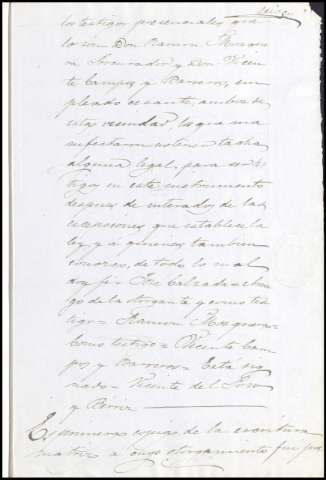 los testigos presenciales que
lo son Don Ramon
Procurador y Don Vicen
te Campos y Barrera, em
pleado cesante, ambos de
esta vecindad, los que ma
nifestaron no tener tacha
alguna legal, para ser tes
tigos en este instrumento
despues de enterados de las
escenciones que establece la
ley, y á quienes tambien
conozco, de todo lo cual
doy fe = José Calzada = á rue
go de la otorgante y como tes
tigo = Ramon
Como testigo = Vicente Cam
pos y Barrera = Está sig
nado = Vicente del
y
Es primera copia de la escritura
matriz á cuyo otorgamiento fui pre